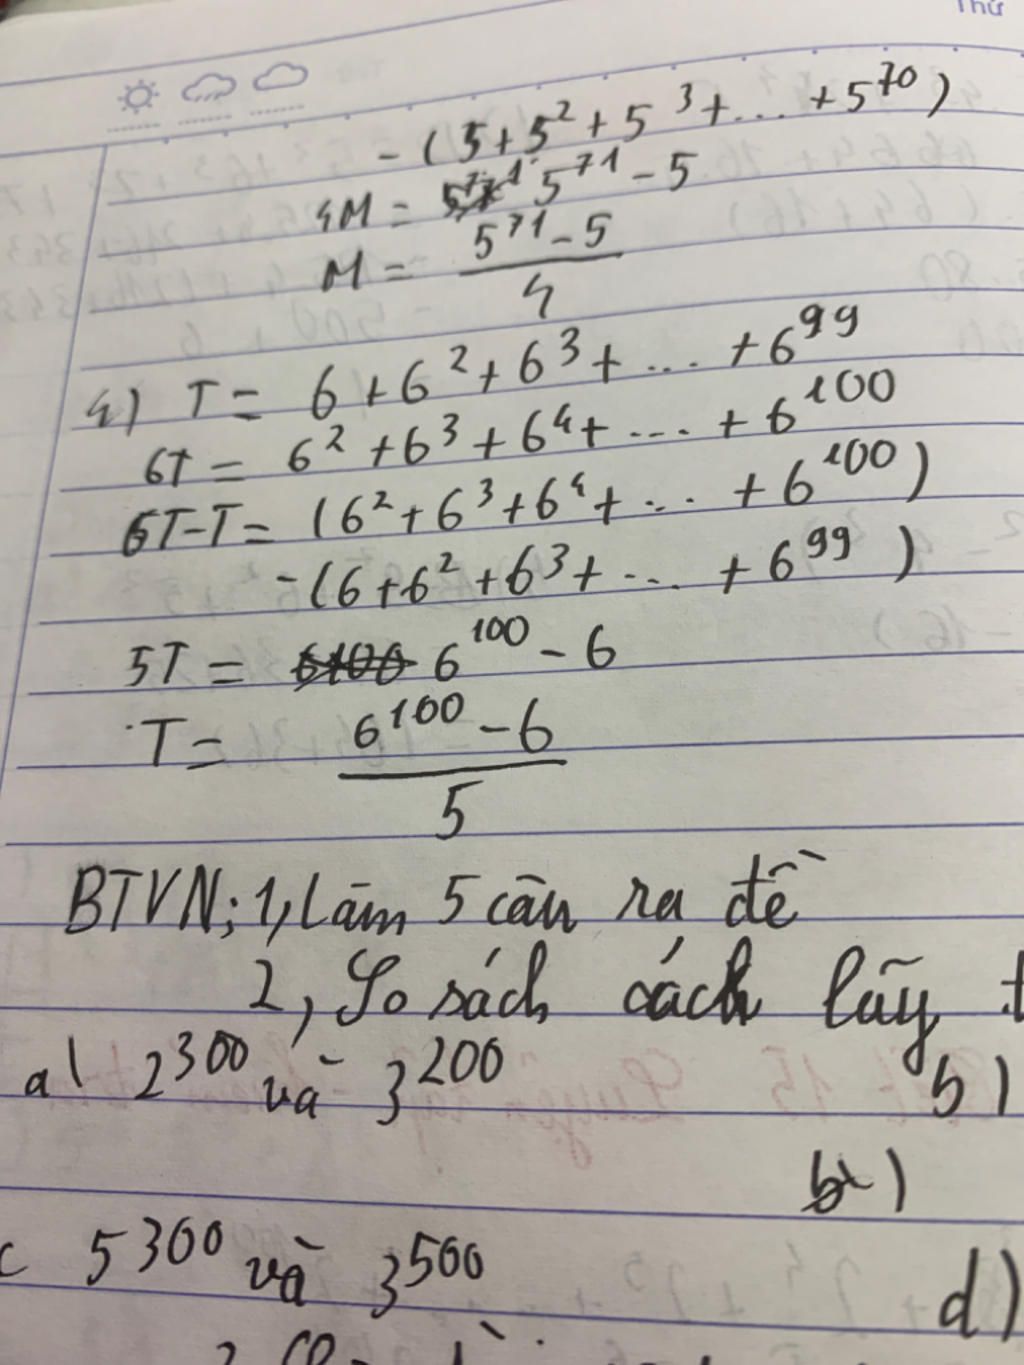 Thứ
- (5 + 5² + 5³ + ... + 5⁷⁰)
4M = 5⁷¹ - 5
M = (5⁷¹ - 5)/4
4) T = 6 + 6² + 6³ + ... + 6⁹⁹
6T = 6² + 6³ + 6⁴ + ... + 6¹⁰⁰
6T - T = (6² + 6³ + 6⁴ + ... + 6¹⁰⁰)
- (6 + 6² + 6³ + ... + 6⁹⁹)
5T = 6¹⁰⁰ - 6
T = (6¹⁰⁰ - 6)/5
BTVN; 1, Làm 5 câu ra đề
2, So sách cách lũy
a) 2³⁰⁰ và 3²⁰⁰ b)
b)
c 5³⁰⁰ và 3⁵⁰⁰ d)